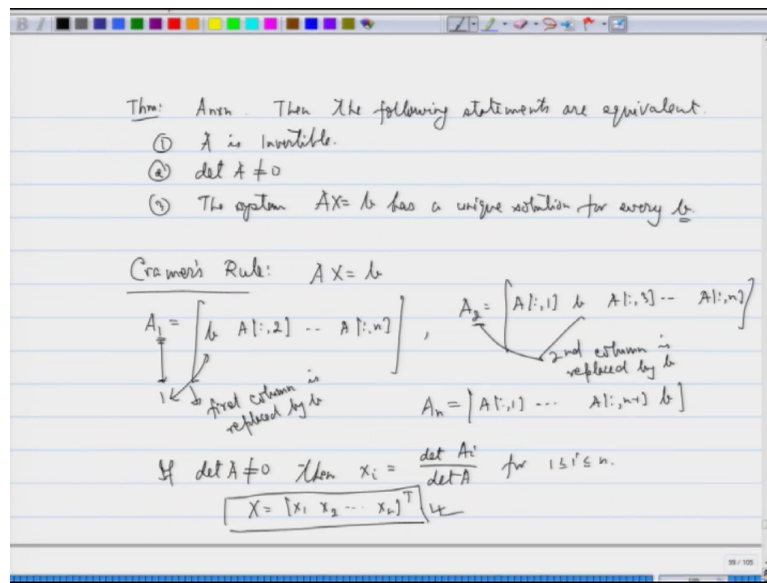 Thm: Anxn. Then the following statements are equivalent.
① A is Invertible.
② det A ≠ 0
③ The system AX = b has a unique solution for every b.
Cramer's Rule: AX = b
A₁ = [b A[:,2] -- A[:,n]], A₂ = [A[:,1] b A[:,3] -- A[:,n]]
first column is replaced by b
2nd column is replaced by b
Aₙ = [A[:,1] --- A[:,n-1] b]
If det A ≠ 0 then xᵢ = det Aᵢ / det A for 1 ≤ i ≤ n.
X = [x₁ x₂ --- xₙ]ᵀ
99 / 105